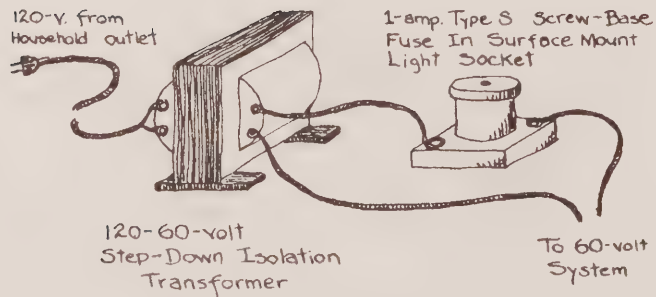 120-V. from
Household outlet
1-amp. Type S Screw-Base
Fuse In Surface Mount
Light Socket
120-60-volt
Step-Down Isolation
Transformer
To 60-volt
System